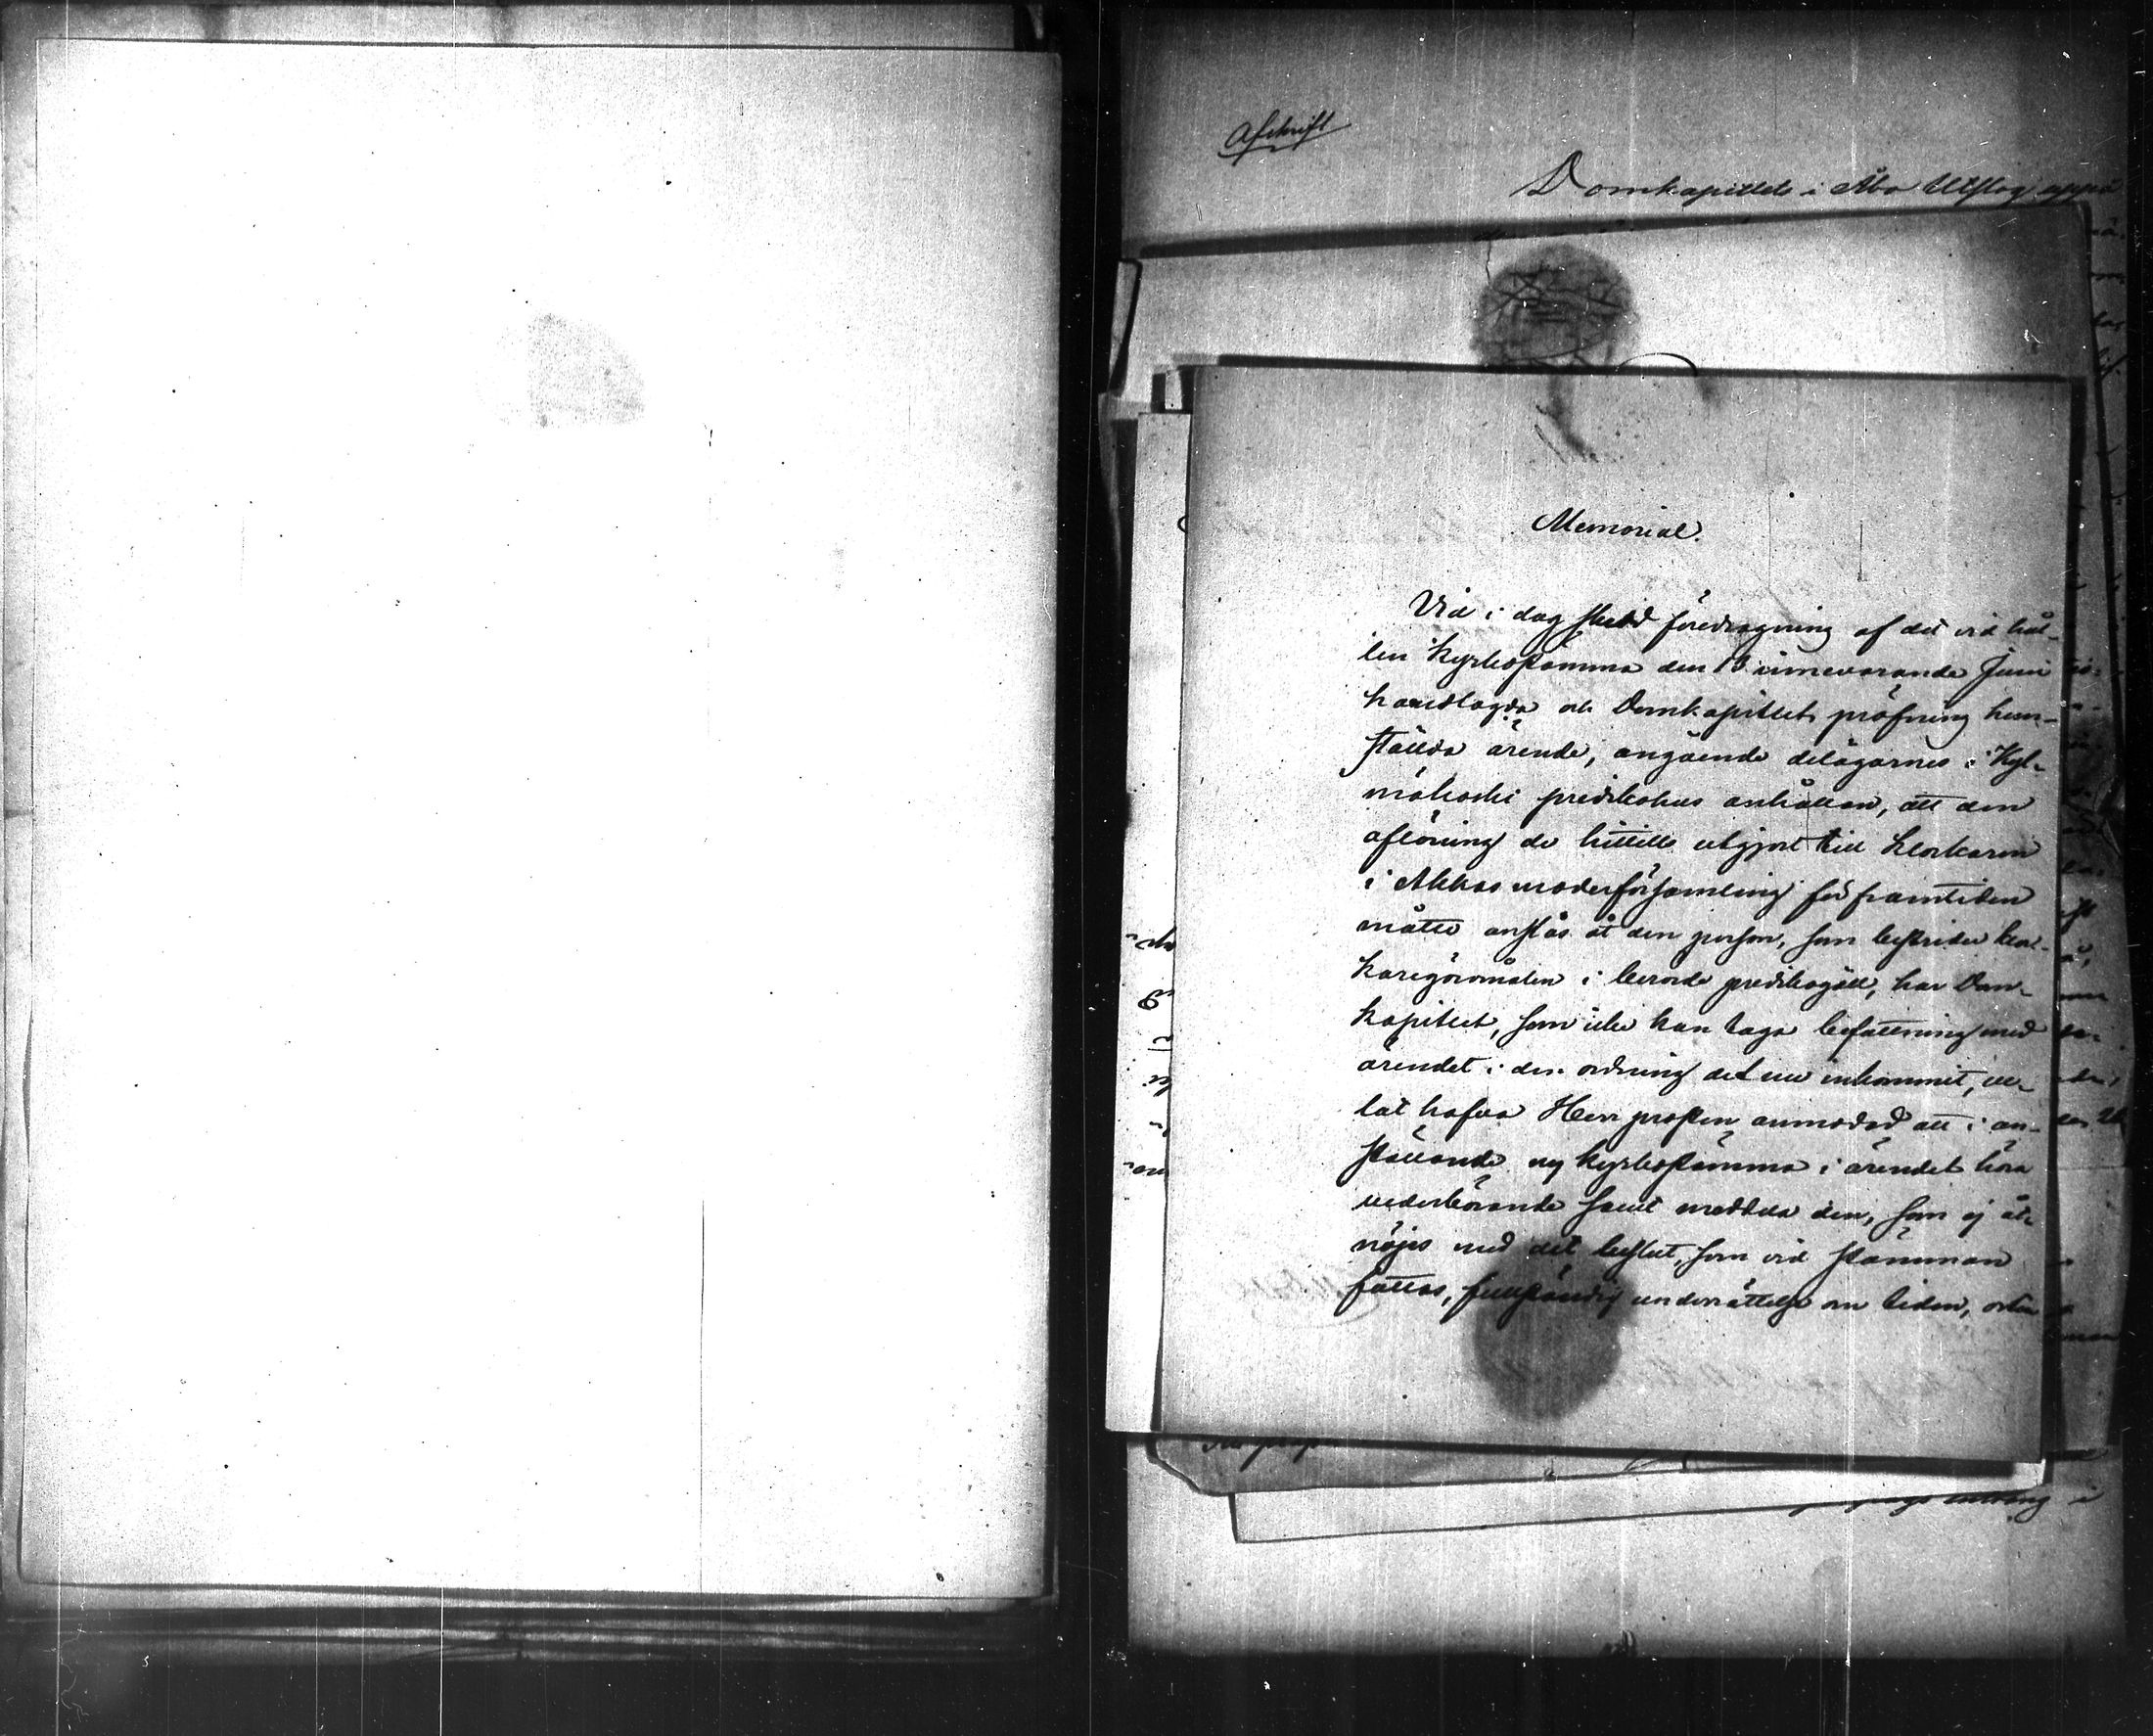 Afskrift
Domkapitlets i Åbo Utslag uppå
Memorial.
Vid i dag skedd föredragning af det vid hål-
len Kyrkostämma den 13 innevarande Juni
handlagda och Domkapitlets pröfning hem-
ställda ärende, angående delägarnes i Kyl-
mäkoski predikohus anhållan, att den
aflöning de hittills utgjort till klockaren
i Akkas moderförsamling för framtiden
måtte anslås åt den person, som bestrider kloc-
karegöromålen i berörde predikogäll, har Dom-
kapitlet, som icke kan taga befattning med
ärendet i den ordning det nu inkommit, ve-
lat hafva Herr prosten anmodad att i an-
ställande ny kyrkostämma i ärendet höra
vederbörande samt meddela den, som ej åt-
nöjes med det beslut, som vid stämman
fattas, fullständig underrättelse om tiden, orten